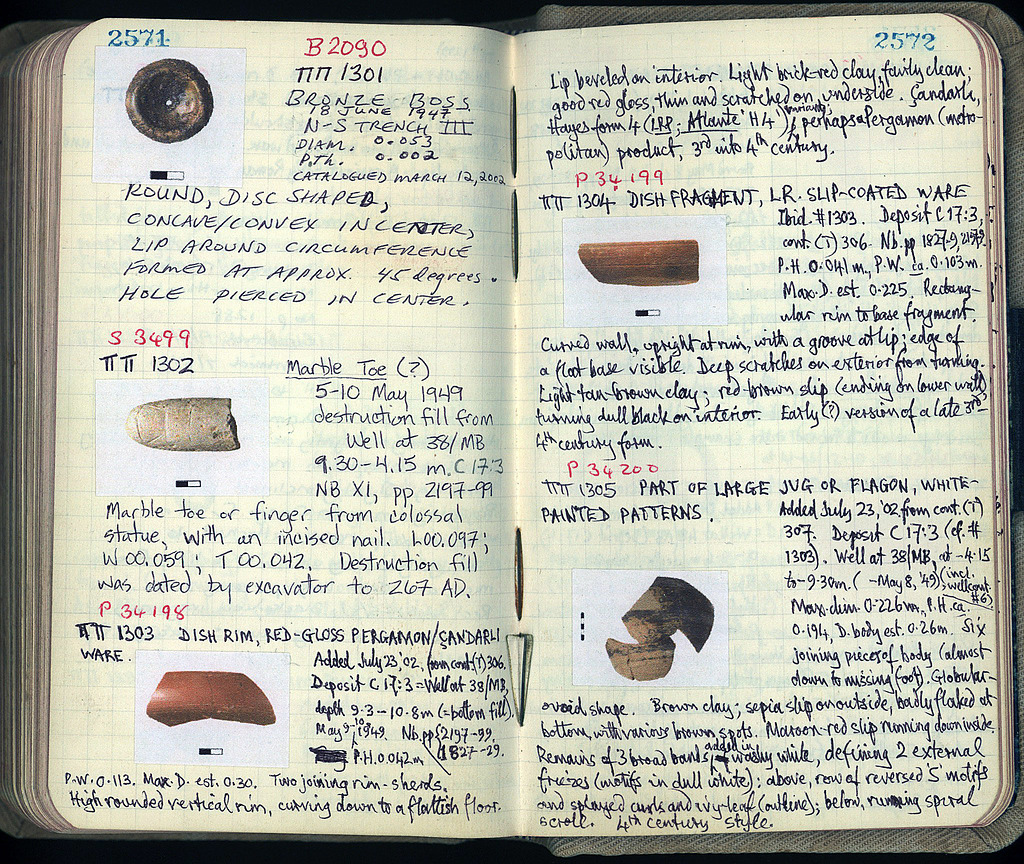 2571
B 2090
ΠΠ 1301
BRONZE BOSS
18 JUNE 1947
N-S TRENCH III
DIAM. 0.053
P.Th. 0.002
CATALOGUED MARCH 12, 2002
ROUND, DISC SHAPED,
CONCAVE/CONVEX IN CENTER,
LIP AROUND CIRCUMFERENCE
FORMED AT APPROX. 45 degrees.
HOLE PIERCED IN CENTER.
S 3499
ΠΠ 1302 Marble Toe (?)
5-10 May 1949
destruction fill from
Well at 38/MB
9.30-4.15 m. C 17:3
NB XI, pp 2197-99
Marble toe or finger from colossal
statue, with an incised nail. L 00.097;
W 00.059; T 00.042. Destruction fill
was dated by excavator to 267 AD.
P 34198
ΠΠ 1303 DISH RIM, RED-GLOSS PERGAMON/ÇANDARLI
WARE.
Added July 23, '02, from cont. (T) 306.
Deposit C 17:3 = Well at 38/MB,
depth 9.3-10.8m (= bottom fill).
May 9-10, 1949. Nb. pp 2197-99.
P.H. 0.042m 1827-29.
P.W. 0.113. Max. D. est. 0.30. Two joining rim-sherds.
High rounded vertical rim, curving down to a flattish floor.
2572
Lip beveled on interior. Light brick-red clay, fairly clean;
good red gloss, thin and scratched on underside. Çandarli,
Hayes form 4 (LRP; Atlante 'H4' variant); perhaps a Pergamon (metro-
politan) product, 3rd into 4th century.
P 34199
ΠΠ 1304 DISH FRAGMENT, L.R. SLIP-COATED WARE
Ibid. #1303. Deposit C 17:3,
cont. (T) 306. Nb. pp 1827-9, 2197-9.
P.H. 0.041m, P.W. ca. 0.103m.
Max. D. est. 0.225. Rectang-
ular rim to base fragment.
Curved wall, upright at rim, with a groove at lip; edge of
a flat base visible. Deep scratches on exterior from turning.
Light tan-brown clay; red-brown slip (ending on lower wall)
turning dull black on interior. Early (?) version of a late 3rd-
4th century form.
P 34200
ΠΠ 1305 PART OF LARGE JUG OR FLAGON, WHITE-
PAINTED PATTERNS.
Added July 23, '02 from cont. (T)
307. Deposit C 17:3 (cf. #
1303). Well at 38/MB, at -4.15
to -9.30m. (-May 8, '49) (incl.
well cont. #6)
Max. dim. 0.226m, P.H. ca.
0.194, D. body est. 0.26m. Six
joining pieces of body (almost
down to missing foot). Globular-
ovoid shape. Brown clay; sepia slip on outside, badly flaked at
bottom, with various brown spots. Maroon-red slip running down inside.
Remains of 3 broad bands added in washy white, defining 2 external
friezes (motifs in dull white): above, row of reversed S motifs
and splayed curls and ivy-leaf (outline); below, running spiral
scroll. 4th century style.